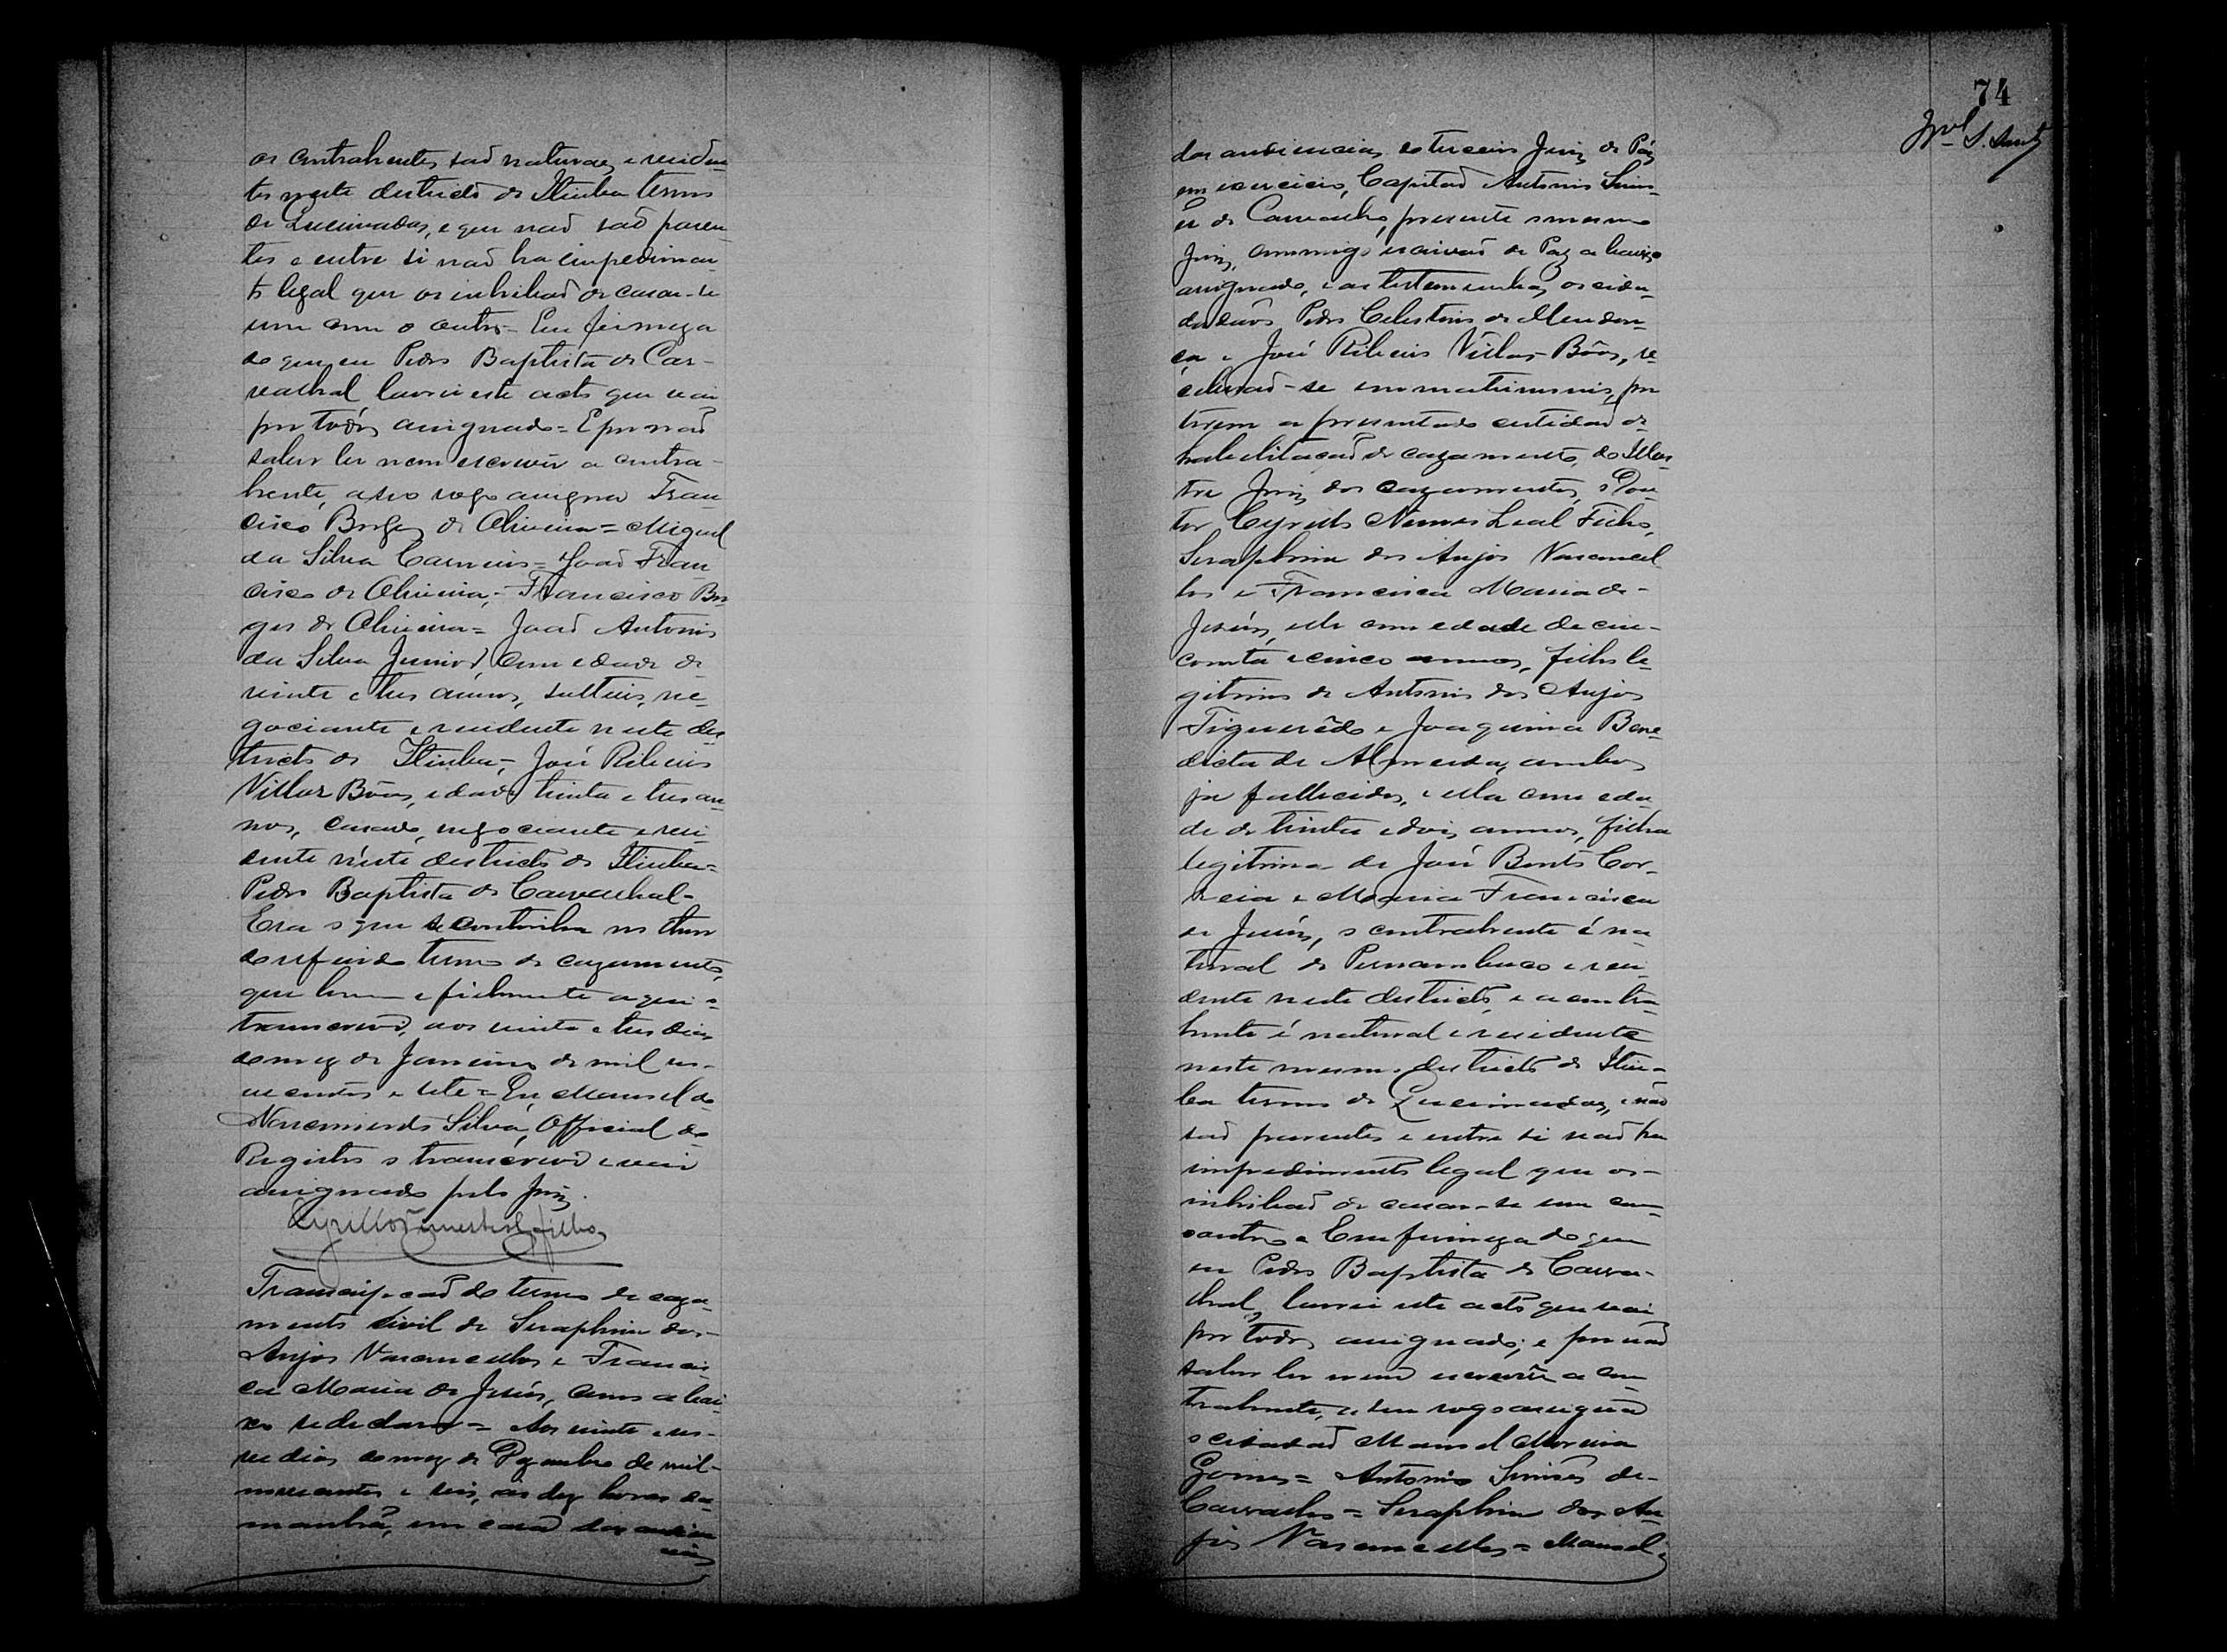 os contrahentes são naturaes e residen-
tes neste districto de Itiuba termo
de Queimadas, e que não são paren-
tes e entre si não ha impedimen-
to legal que os inhibão de casar-se
um com o outro = Em firmeza
do que eu Pedro Baptista de Car-
valhal lavrei este acto que vai
por todos assignado = E por não
saber ler nem escrever a contra-
hente, a seo rogo assigna Fran-
cisco Borges de Oliveira = Miguel
da Silva Carneiro = João Fran-
cisco de Oliveira = Francisco Bor-
ges de Oliveira = João Antonio
da Silva Junior, com edade de
vinte e tres annos, solteiro, ne-
gociante e residente neste dis-
tricto de Itiuba = José Ribeiro
Villas Bôas, edade trinta e tres an-
nos, casado, negociante e resi-
dente n'este districto de Itiuba =
Pedro Baptista de Carvalhal -
Era o que se continha no theor
do referido termo de cazamento,
que bem e fielmente aqui o
transcrevi, aos vinte e tres dias
do mez de Janeiro de mil no-
vecentos e sete = Eu Manoel do
Nascimento Silva, Official do
Registro o transcrevi e vai
assignado pelo Juiz.
Cyrillo Nunes Leal Filho
Transcripção do termo de caza-
mento civil de Seraphim dos
Anjos Vasconcellos e Francis-
ca Maria de Jesús, como abai-
xo se declara = Aos vinte e no-
ve dias do mez de Dezembro de mil
novecentos e seis, as dez horas da
manhã, em casa das audien
cias
74
dos audiencias do terceiro Juiz de Páz
em exercicio, Capitão Antonio Simõ-
es de Carvalho, presente o mesmo
Juiz, commigo escrivão de Paz abaixo
assignado, e as testemunhas os cida-
dadãos Pedro Celestino de Mendon-
ça e José Ribeiro Villas-Bôas, re-
ceberão-se em matrimonio, por
terem apresentado certidão de
habelitação de cazamento, do Illus-
tre Juiz dos cazamentos, o Dou-
tor Cyrillo Nunes Leal Filho,
Seraphim dos Anjos Vasconcel-
los e Francisca Maria de
Jesús, elle com edade de cin-
coenta e cinco annos, filho le-
gitimo de Antonio dos Anjos
Figuerêdo e Joaquina Bene-
dicta de Almeida, ambos
ja fallecidos, e ella com eda-
de de trinta e dois annos, filha
legitima de José Bento Cor-
reia e Maria Francisca
de Jesús, o contrahente é na-
tural de Pernambuco e resi-
dente neste districto, e a contra-
hente é natural e residente
neste mesmo districto de Itiu-
ba termo de Queimadas, e não
são parentes e entre si não ha
impedimento legal que os
inhibão de casar-se um com
o outro = Em firmeza do que
eu Pedro Baptista de Carva-
lhal, lavrei este acto que vai
por todos assignado; e por não
saber ler nem escrevêr a con-
trahente, a seu rogo assigna
o cidadão Manoel Moreira
Gomes = Antonio Simões de
Carvalho = Seraphim dos An-
jos Vasconcellos = Manoel